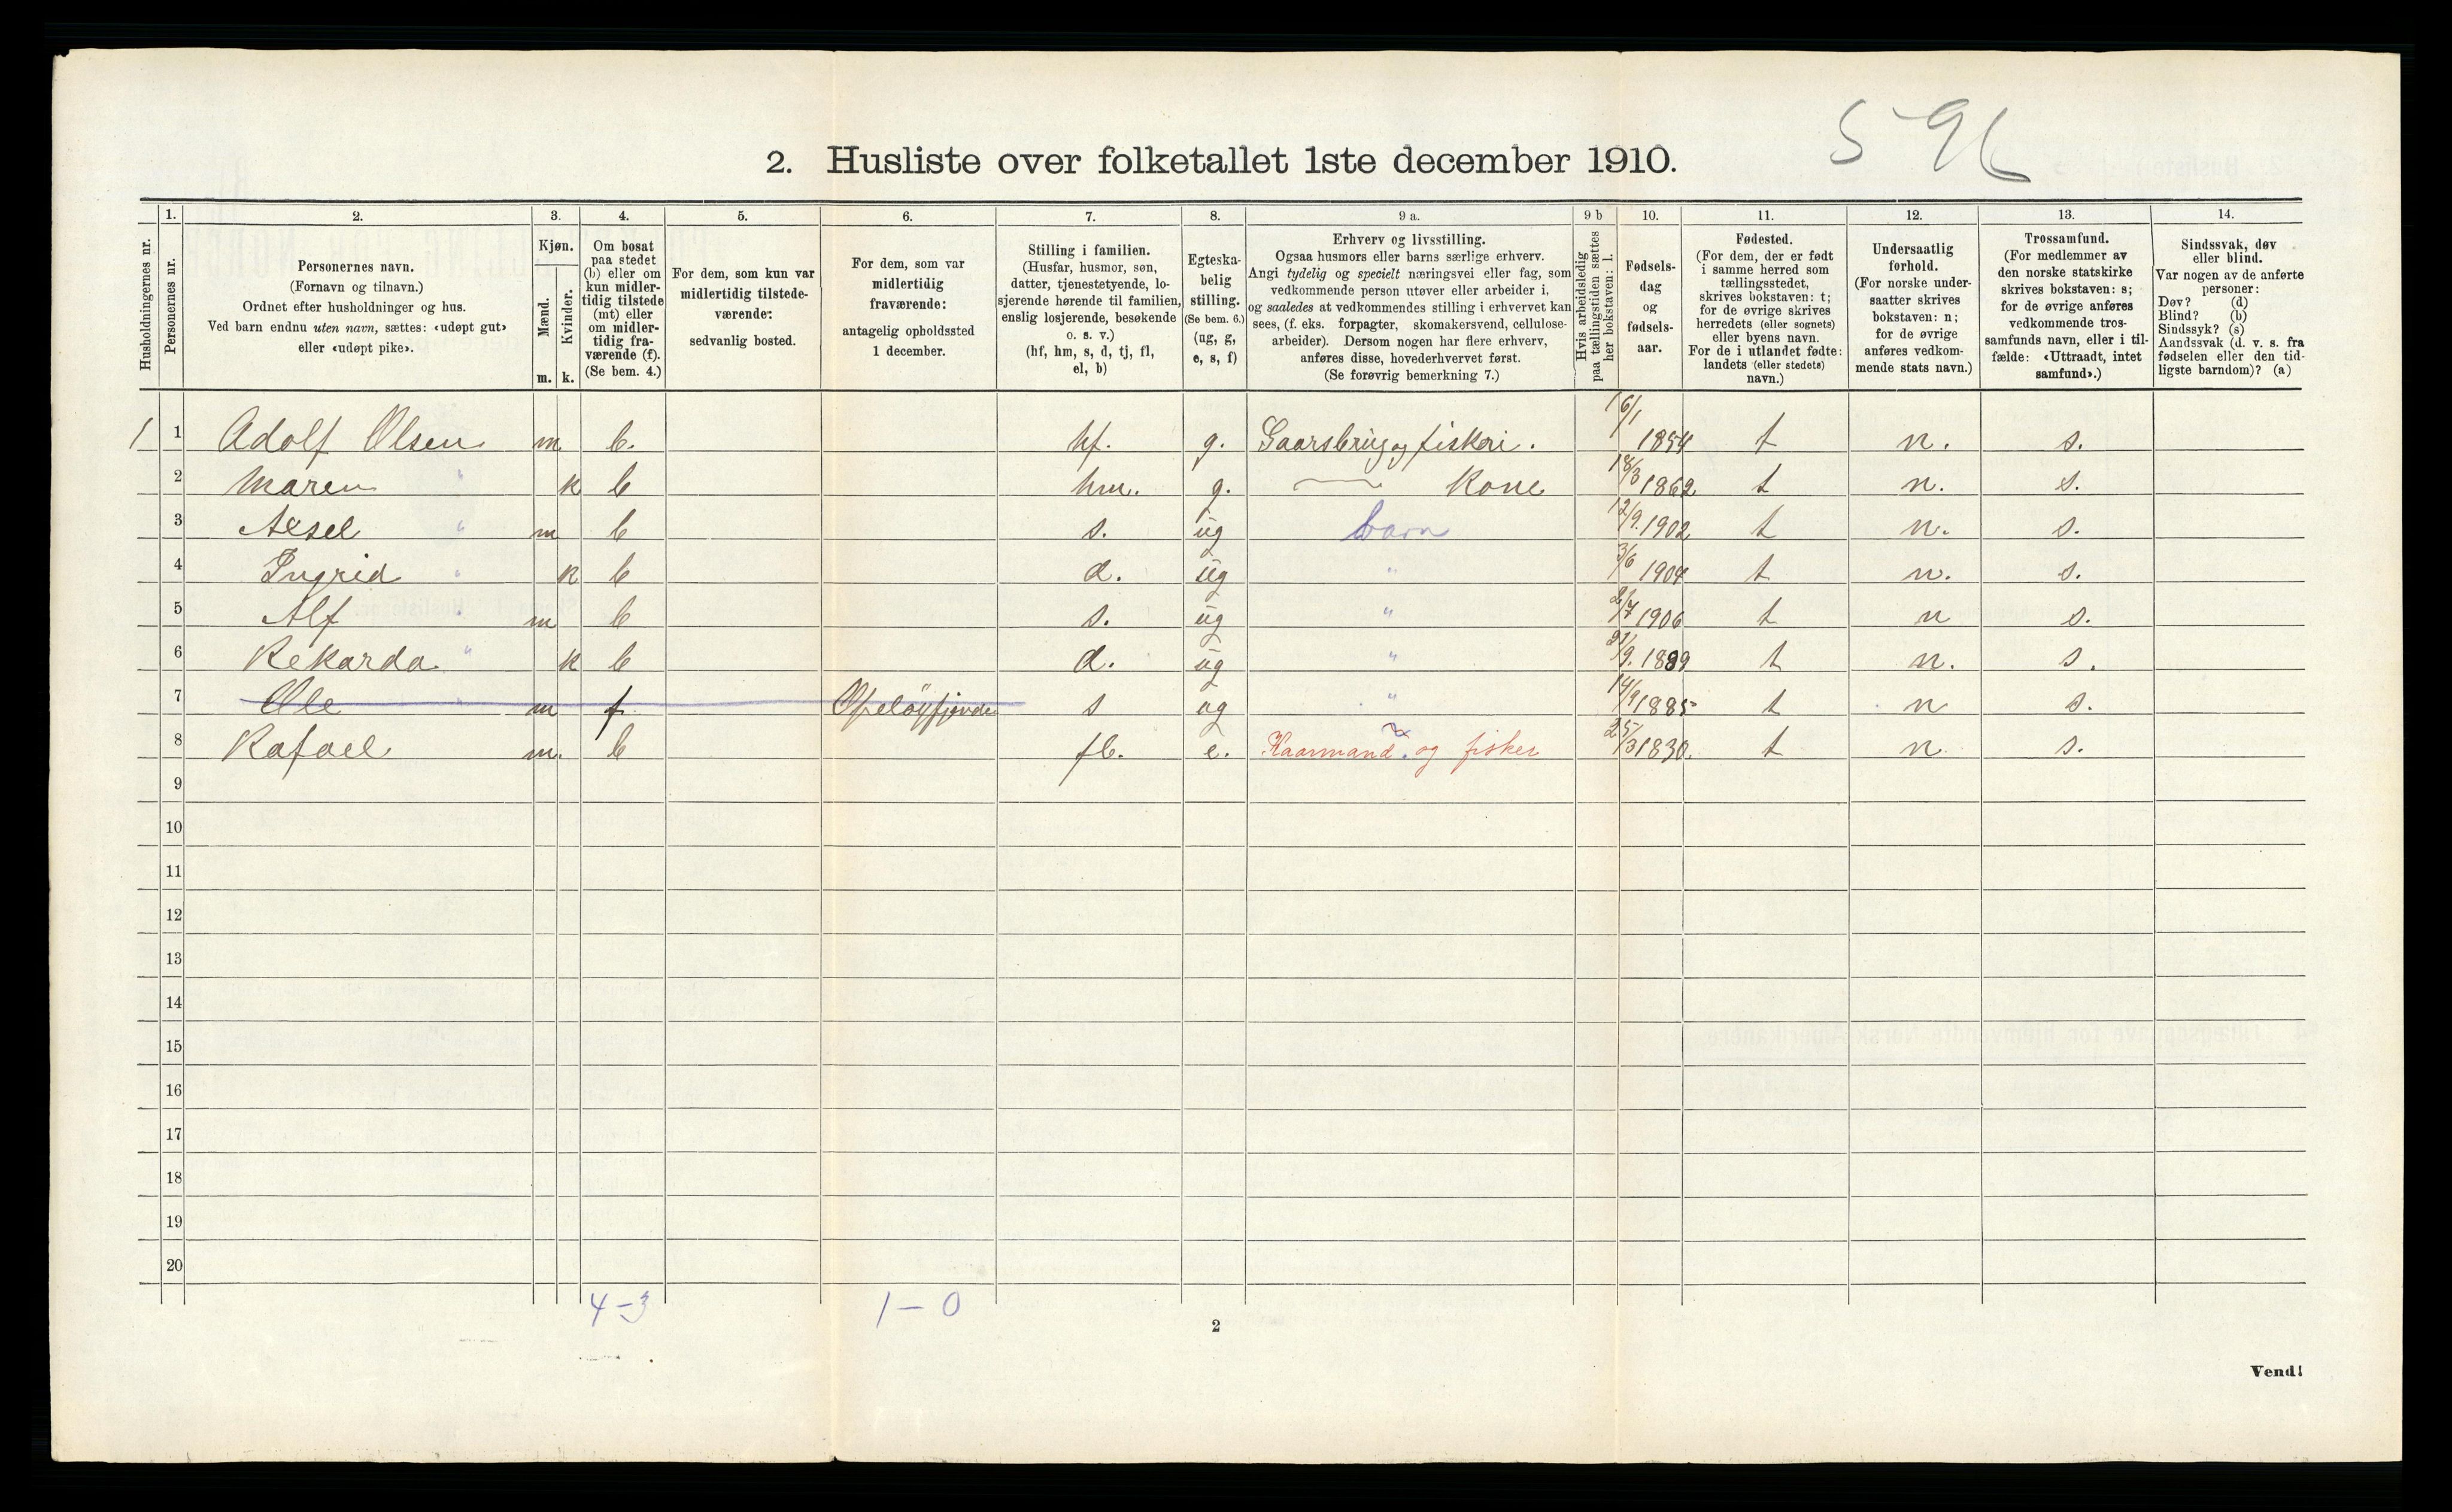 596
2. Husliste over folketallet 1ste december 1910.
Husholdningernes nr.
1.
Personernes nr.
2.
Personernes navn.
(Fornavn og tilnavn.)
Ordnet efter husholdninger og hus.
Ved barn endnu uten navn, sættes: «udøpt gut»
eller «udøpt pike».
3.
Kjøn.
Mænd.
Kvinder.
m. k.
4.
Om bosat
paa stedet
(b) eller om
kun midler-
tidig tilstede
(mt) eller
om midler-
tidig fra-
værende (f).
(Se bem. 4.)
5.
For dem, som kun var
midlertidig tilstede-
værende:
sedvanlig bosted.
6.
For dem, som var
midlertidig
fraværende:
antagelig opholdssted
1 december.
7.
Stilling i familien.
(Husfar, husmor, søn,
datter, tjenestetyende, lo-
sjerende hørende til familien,
enslig losjerende, besøkende
o. s. v.)
(hf, hm, s, d, tj, fl,
el, b)
8.
Egteska-
belig
stilling.
(Se bem. 6.)
(ug, g,
e, s, f)
9 a.
Erhverv og livsstilling.
Ogsaa husmors eller barns særlige erhverv.
Angi tydelig og specielt næringsvei eller fag, som
vedkommende person utøver eller arbeider i,
og saaledes at vedkommendes stilling i erhvervet kan
sees, (f. eks. forpagter, skomakersvend, cellulose-
arbeider). Dersom nogen har flere erhverv,
anføres disse, hovederhvervet først.
(Se forøvrig bemerkning 7.)
9 b
Hvis arbeidsledig
paa tællingstiden sættes
her bokstaven: l.
10.
Fødsels-
dag
og
fødsels-
aar.
11.
Fødested.
(For dem, der er født
i samme herred som
tællingsstedet,
skrives bokstaven: t;
for de øvrige skrives
herredets (eller sognets)
eller byens navn.
For de i utlandet fødte:
landets (eller stedets)
navn.)
12.
Undersaatlig
forhold.
(For norske under-
saatter skrives
bokstaven: n;
for de øvrige
anføres vedkom-
mende stats navn.)
13.
Trossamfund.
(For medlemmer av
den norske statskirke
skrives bokstaven: s;
for de øvrige anføres
vedkommende tros-
samfunds navn, eller i til-
fælde: «Uttraadt, intet
samfund».)
14.
Sindssvak, døv
eller blind.
Var nogen av de anførte
personer:
Døv? (d)
Blind? (b)
Sindssyk? (s)
Aandssvak (d. v. s. fra
fødselen eller den tid-
ligste barndom)? (a)
1 1 Adolf Olsen m b. hf. g. Gaarsbrug og fiskeri. 16/1 1854 t n. s.
2 Maren " k b hm. g. Kone 18/3 1862 t n. s.
3 Aksel " m b s. ug barn 12/9. 1902 t n. s.
4 Ingrid " k b d. ug " 3/6 1904 t n. s.
5 Alf " m b s. ug " 1906 t n s.
6 Rekarda " k b d. ug " 1889 t n. s.
7 Ole " m f s ug " 14/9 1885 t n s.
8 Rafael m. b fl. e. Kaarmand. og fisker 25/3 1830. t n s.
9
10
11
12
13
14
15
16
17
18
19
20
4-3 1-0
2
Vend!